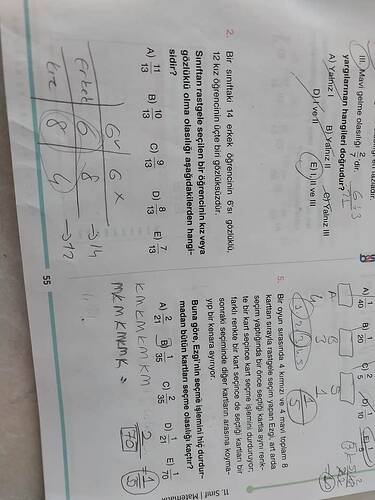 III. Mavi gelme olasılığı 2/7 'dir.
yargılarından hangileri doğrudur?
A) Yalnız I
B) Yalnız II
C) Yalnız III
D) I ve II
E) I, II ve III
2. Bir sınıftaki 14 erkek öğrencinin 6'sı gözlüklü,
12 kız öğrencinin üçte biri gözlüksüzdür.
Sınıftan rastgele seçilen bir öğrencinin kız veya
gözlüklü olma olasılığı aşağıdakilerden hangi-
sidir?
A) 11/13 B) 10/13 C) 9/13 D) 8/13 E) 7/13
Gv G x
Erkek 6 8 → 14
kız 8 4 → 12
55
A) 1/40 B) 1/20 C) 2/5 D) 1/10 E) 1/5
5. Bir oyun sırasında 4 kırmızı ve 4 mavi toplam 8
karttan sırayla rastgele seçim yapan Ezgi, art arda
seçim yaptığında bir önce seçtiği kartla aynı renk-
te bir kart seçince kart seçme işlemini durduruyor;
farklı renkte bir kart seçince de seçtiği kartları bir
sonraki seçiminde diğer kartların arasına koyma-
yıp bir kenara ayırıyor.
Buna göre, Ezgi'nin seçme işlemini hiç durdur-
madan bütün kartları seçme olasılığı kaçtır?
A) 2/21 B) 1/35 C) 2/35 D) 1/21 E) 1/70
KMKMKMKM
MKMKMKMK
2/70
11. Sınıf Matematik